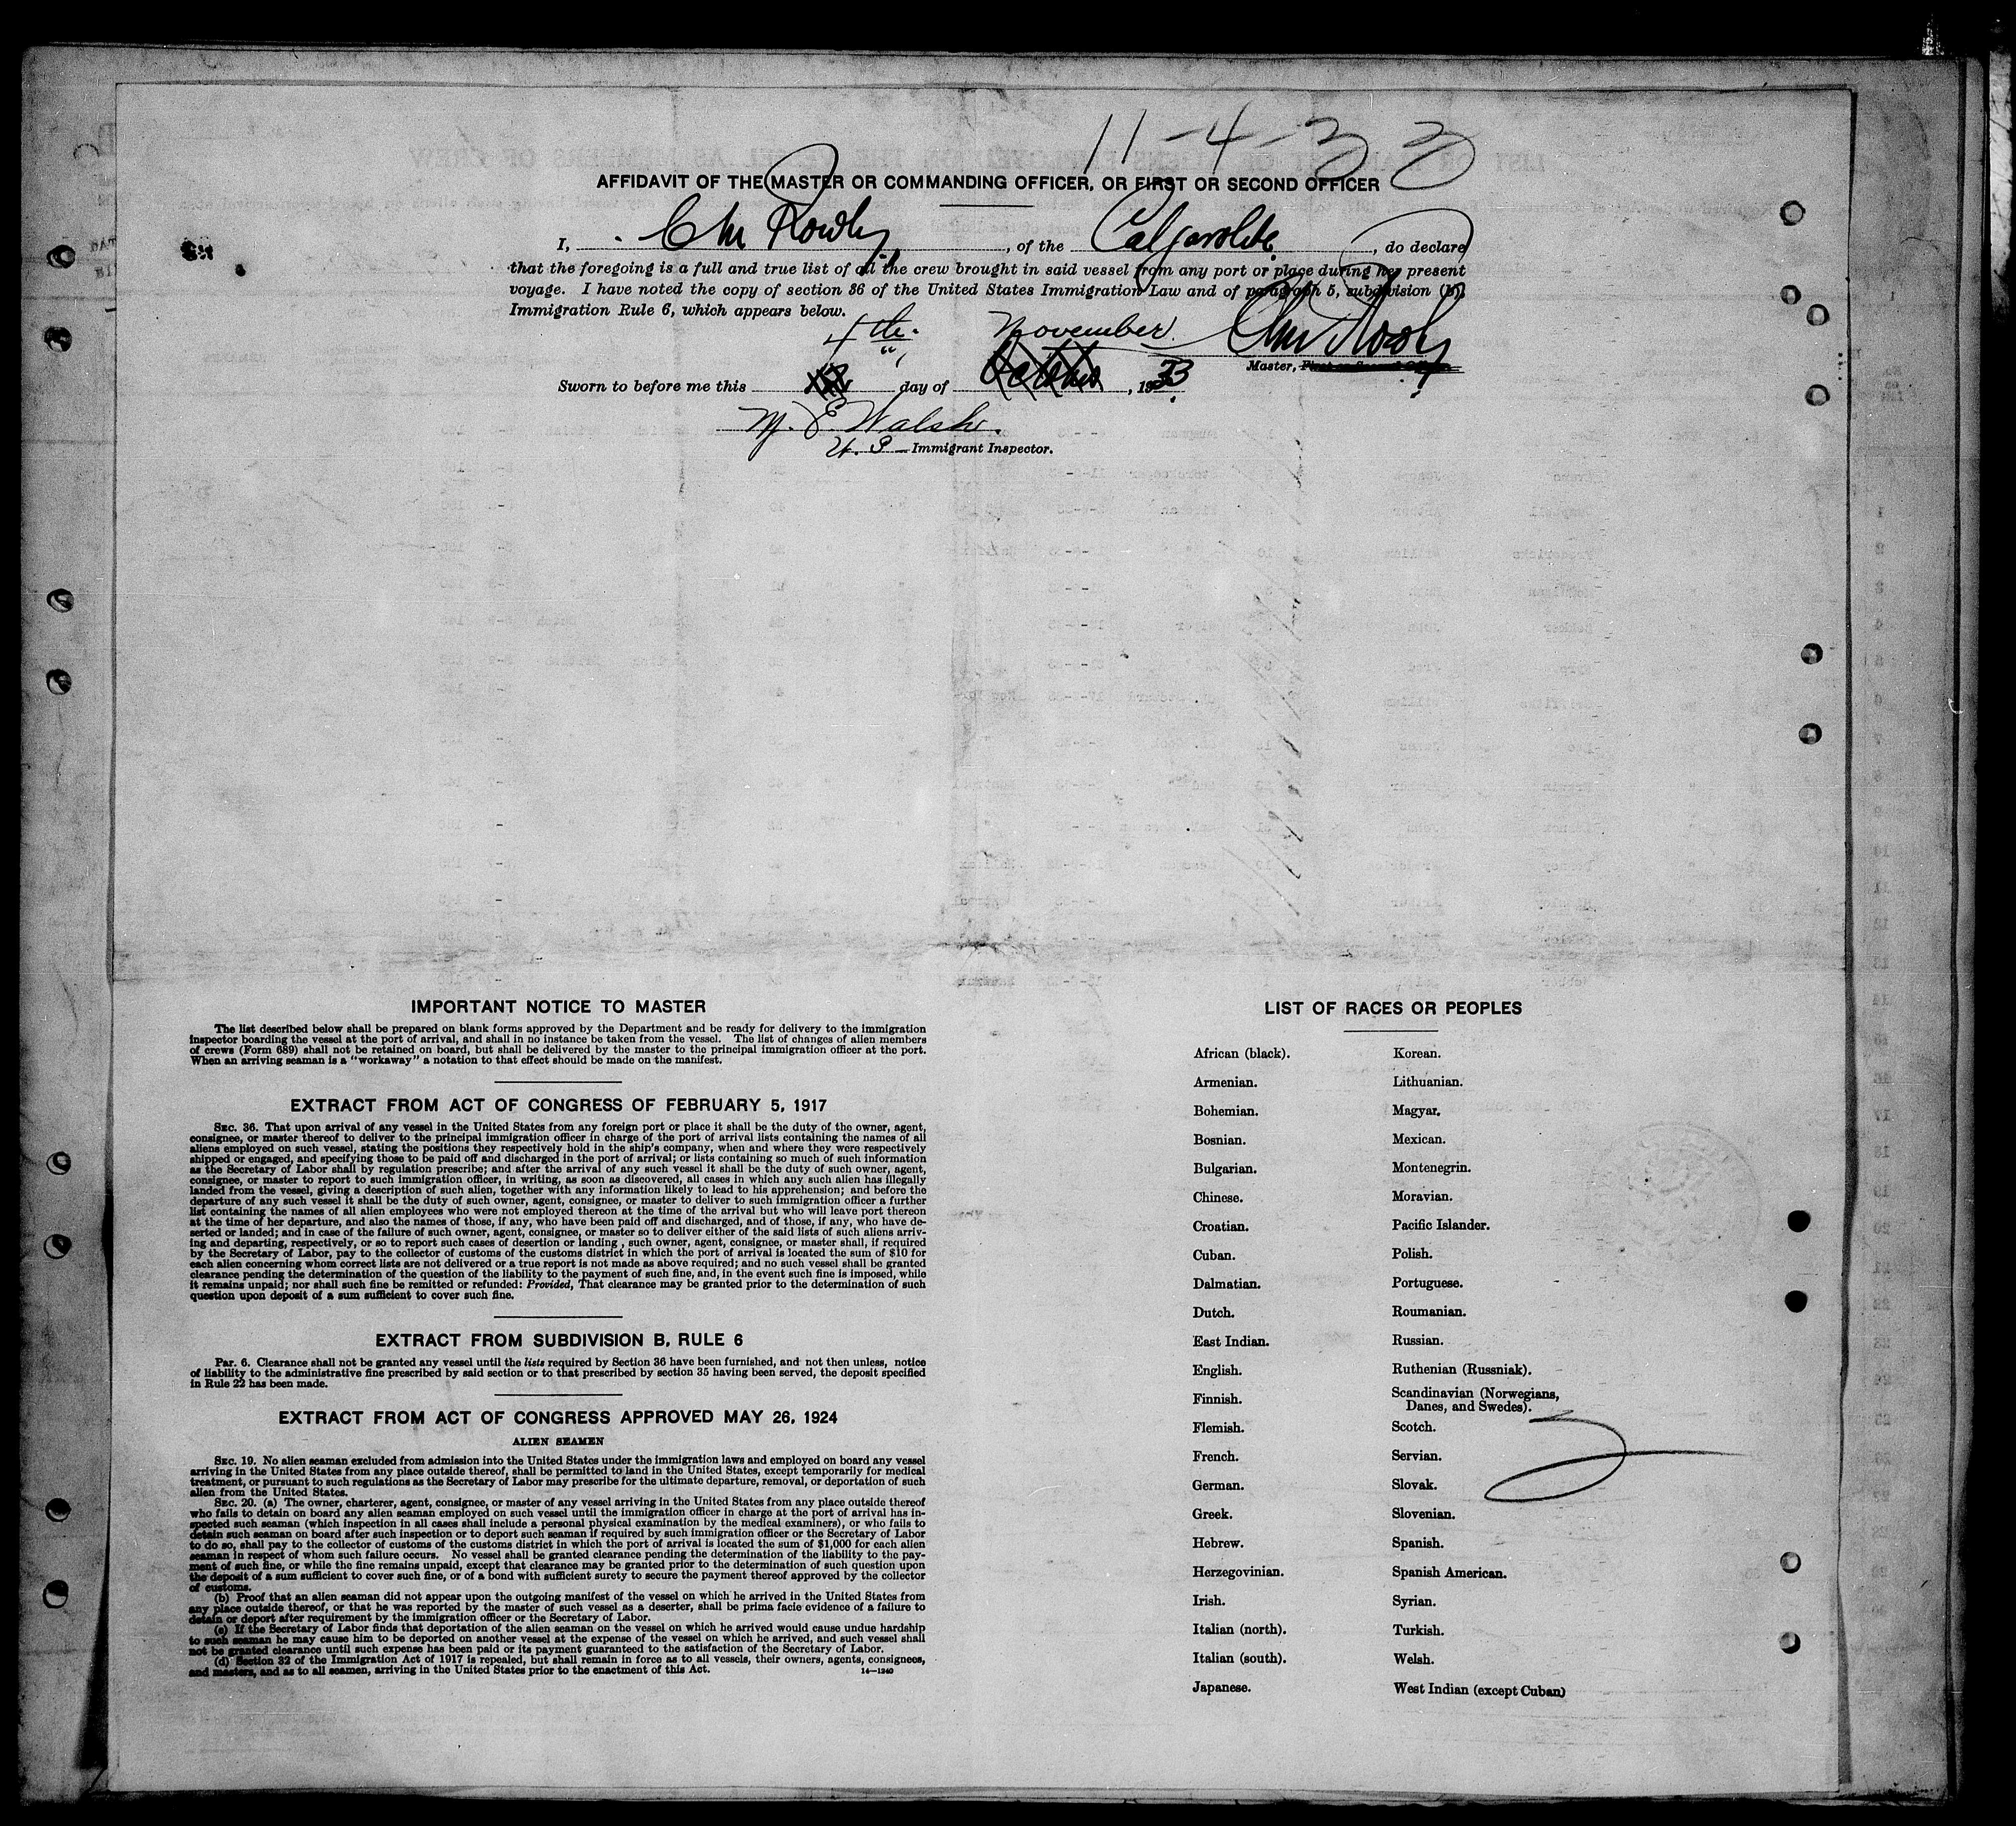 11-4-33
AFFIDAVIT OF THE MASTER OR COMMANDING OFFICER, OR FIRST OR SECOND OFFICER
I, C M Rowley, of the Calgarolite, do declare
that the foregoing is a full and true list of all the crew brought in said vessel from any port or place during her present
voyage. I have noted the copy of section 36 of the United States Immigration Law and of paragraph 5, subdivision (b),
Immigration Rule 6, which appears below.
4th November
Master, First or Second Officer
Sworn to before me this day of October, 1933
M. E. Walsh.
U. S. Immigrant Inspector.
IMPORTANT NOTICE TO MASTER
The list described below shall be prepared on blank forms approved by the Department and be ready for delivery to the immigration
inspector boarding the vessel at the port of arrival, and shall in no instance be taken from the vessel. The list of changes of alien members
of crews (Form 689) shall not be retained on board, but shall be delivered by the master to the principal immigration officer at the port.
When an arriving seaman is a "workaway" a notation to that effect should be made on the manifest.
EXTRACT FROM ACT OF CONGRESS OF FEBRUARY 5, 1917
SEC. 36. That upon arrival of any vessel in the United States from any foreign port or place it shall be the duty of the owner, agent,
consignee, or master thereof to deliver to the principal immigration officer in charge of the port of arrival lists containing the names of all
aliens employed on such vessel, stating the positions they respectively hold in the ship's company, when and where they were respectively
shipped or engaged, and specifying those to be paid off and discharged in the port of arrival; or lists containing so much of such information
as the Secretary of Labor shall by regulation prescribe; and after the arrival of any such vessel it shall be the duty of such owner, agent,
consignee, or master to report to such immigration officer, in writing, as soon as discovered, all cases in which any such alien has illegally
landed from the vessel, giving a description of such alien, together with any information likely to lead to his apprehension; and before the
departure of any such vessel it shall be the duty of such owner, agent, consignee, or master to deliver to such immigration officer a further
list containing the names of all alien employees who were not employed thereon at the time of the arrival but who will leave port thereon
at the time of her departure, and also the names of those, if any, who have been paid off and discharged, and of those, if any, who have de-
serted or landed; and in case of the failure of such owner, agent, consignee, or master so to deliver either of the said lists of such aliens arriv-
ing and departing, respectively, or so to report such cases of desertion or landing , such owner, agent, consignee, or master shall, if required
by the Secretary of Labor, pay to the collector of customs of the customs district in which the port of arrival is located the sum of $10 for
each alien concerning whom correct lists are not delivered or a true report is not made as above required; and no such vessel shall be granted
clearance pending the determination of the question of the liability to the payment of such fine, and, in the event such fine is imposed, while
it remains unpaid; nor shall such fine be remitted or refunded: Provided, That clearance may be granted prior to the determination of such
question upon deposit of a sum sufficient to cover such fine.
EXTRACT FROM SUBDIVISION B, RULE 6
Par. 6. Clearance shall not be granted any vessel until the lists required by Section 36 have been furnished, and not then unless, notice
of liability to the administrative fine prescribed by said section or to that prescribed by section 35 having been served, the deposit specified
in Rule 22 has been made.
EXTRACT FROM ACT OF CONGRESS APPROVED MAY 26, 1924
ALIEN SEAMEN
SEC. 19. No alien seaman excluded from admission into the United States under the immigration laws and employed on board any vessel
arriving in the United States from any place outside thereof, shall be permitted to land in the United States, except temporarily for medical
treatment, or pursuant to such regulations as the Secretary of Labor may prescribe for the ultimate departure, removal, or deportation of such
alien from the United States.
SEC. 20. (a) The owner, charterer, agent, consignee, or master of any vessel arriving in the United States from any place outside thereof
who fails to detain on board any alien seaman employed on such vessel until the immigration officer in charge at the port of arrival has in-
spected such seaman (which inspection in all cases shall include a personal physical examination by the medical examiners), or who fails to
detain such seaman on board after such inspection or to deport such seaman if required by such immigration officer or the Secretary of Labor
to do so, shall pay to the collector of customs of the customs district in which the port of arrival is located the sum of $1,000 for each alien
seaman in respect of whom such failure occurs. No vessel shall be granted clearance pending the determination of the liability to the pay-
ment of such fine, or while the fine remains unpaid, except that clearance may be granted prior to the determination of such question upon
the deposit of a sum sufficient to cover such fine, or of a bond with sufficient surety to secure the payment thereof approved by the collector
of customs.
(b) Proof that an alien seaman did not appear upon the outgoing manifest of the vessel on which he arrived in the United States from
any place outside thereof, or that he was reported by the master of such vessel as a deserter, shall be prima facie evidence of a failure to
detain or deport after requirement by the immigration officer or the Secretary of Labor.
(c) If the Secretary of Labor finds that deportation of the alien seaman on the vessel on which he arrived would cause undue hardship
to such seaman he may cause him to be deported on another vessel at the expense of the vessel on which he arrived, and such vessel shall
not be granted clearance until such expense has been paid or its payment guaranteed to the satisfaction of the Secretary of Labor.
(d) Section 32 of the Immigration Act of 1917 is repealed, but shall remain in force as to all vessels, their owners, agents, consignees,
and masters, and as to all seamen, arriving in the United States prior to the enactment of this Act.
14—1240
LIST OF RACES OR PEOPLES
African (black).
Armenian.
Bohemian.
Bosnian.
Bulgarian.
Chinese.
Croatian.
Cuban.
Dalmatian.
Dutch.
East Indian.
English.
Finnish.
Flemish.
French.
German.
Greek.
Hebrew.
Herzegovinian.
Irish.
Italian (north).
Italian (south).
Japanese.
Korean.
Lithuanian.
Magyar.
Mexican.
Montenegrin.
Moravian.
Pacific Islander.
Polish.
Portuguese.
Roumanian.
Russian.
Ruthenian (Russniak).
Scandinavian (Norwegians,
Danes, and Swedes).
Scotch.
Servian.
Slovak.
Slovenian.
Spanish.
Spanish American.
Syrian.
Turkish.
Welsh.
West Indian (except Cuban)